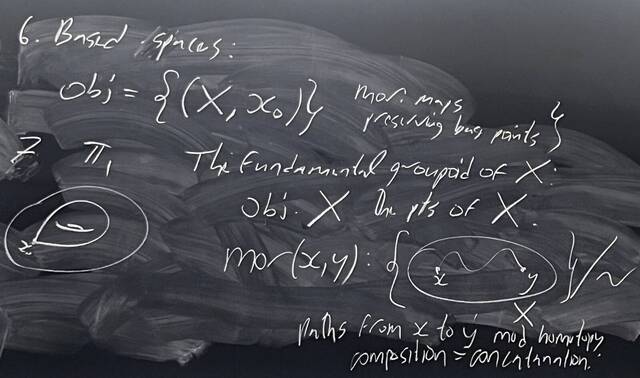 6. Based spaces:
obj = {(X, x₀)} mor: maps preserving base points }
7 π₁ The Fundamental groupoid of X:
x
obj: X the pts of X.
mor(x,y): { x y }/~
X
paths from x to y mod homotopy
composition = concatenation.